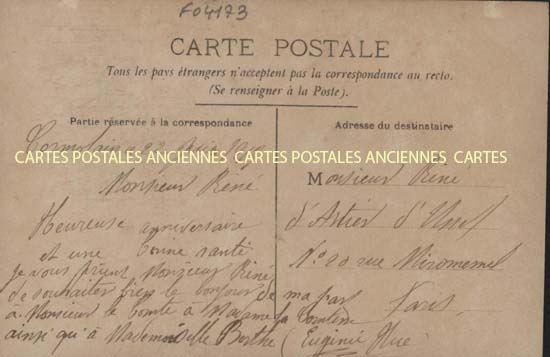 F04173
CARTE POSTALE
Tous les pays étrangers n'acceptent pas la correspondance au recto.
(Se renseigner à la Poste).
Partie réservée à la correspondance
Adresse du destinataire
CARTES POSTALES ANCIENNES CARTES POSTALES ANCIENNES CARTES
Monsieur René
Heureuse anniversaire
et une bonne santé
je vous prient Monsieur René
de souhaiter bien le bonjour de ma par
à Monsieur le Comte à Madame la Comtesse
ainsi qu'à Mademoiselle Berthe
Eugénie Hue
Monsieur René
d'Astier d'Ussel
N° 20 rue Miromemel
Paris